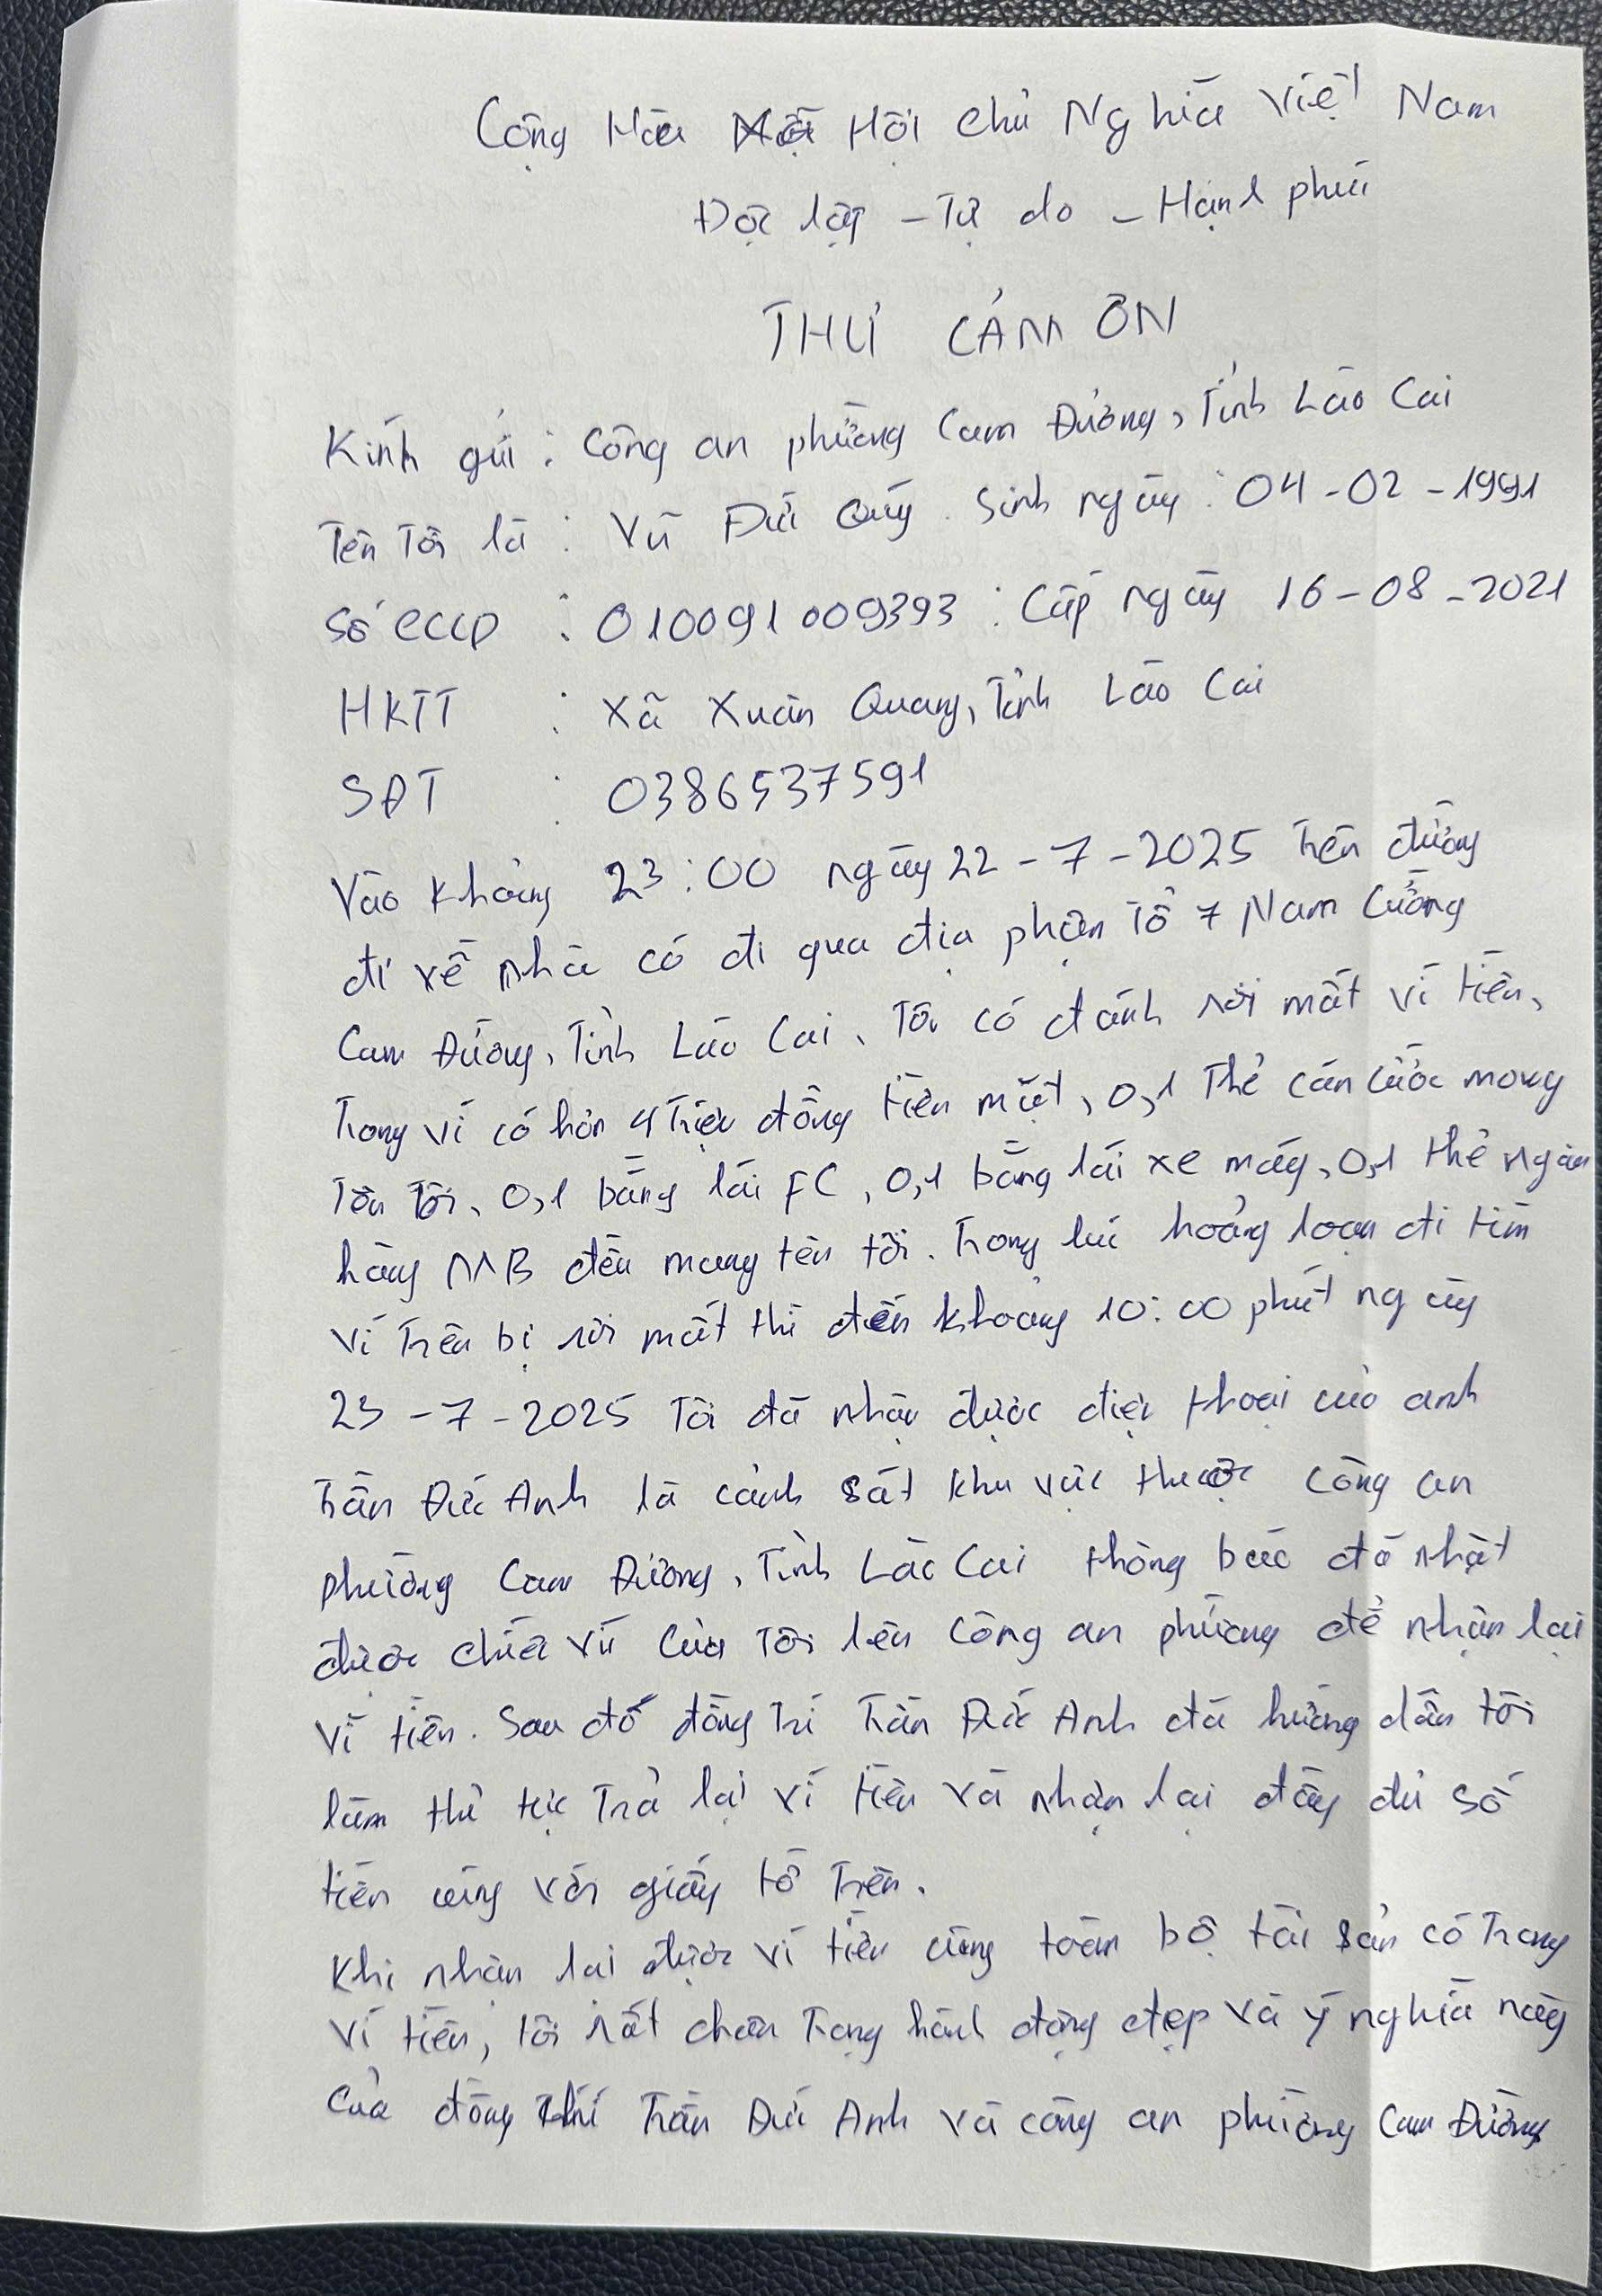 Cộng Hòa Xã Hội Chủ Nghĩa Việt Nam
Độc lập - Tự do - Hạnh phúc
THƯ CẢM ƠN
Kính gửi : Công an phường Cam Đường, Tỉnh Lào Cai
Tên Tôi là : Vũ Đức Quý. Sinh ngày : 04-02-1991
Số CCCD : 010091009393 : Cấp ngày 16-08-2021
HKTT : Xã Xuân Quang, Tỉnh Lào Cai
SĐT : 0386537591
Vào khoảng 23:00 ngày 22-7-2025 Trên đường
đi về nhà có đi qua địa phận Tổ 7 Nam Cường
Cam Đường, Tỉnh Lào Cai, Tôi có đánh rơi mất ví tiền,
Trong ví có hơn 4 Triệu đồng tiền mặt, 0,1 Thẻ căn cước mang
Tên Tôi, 0,1 bằng lái FC, 0,1 bằng lái xe máy, 0,1 thẻ ngân
hàng MB đều mang tên tôi. Trong lúc hoảng loạn đi tìm
ví Trên bị rơi mất thì đến khoảng 10:00 phút ngày
23-7-2025 Tôi đã nhận được điện thoại của anh
Trần Đức Anh là cảnh sát khu vực thuộc công an
phường Cam Đường, Tỉnh Lào Cai thông báo đã nhặt
được chiếc ví của Tôi lên công an phường để nhận lại
ví tiền. Sau đó đồng trí Trần Đức Anh đã hướng dẫn tôi
làm thủ tục Trả lại ví tiền và nhận lại đầy đủ số
tiền cùng với giấy tờ Trên.
Khi nhận lại được ví tiền cùng toàn bộ tài sản có Trong
ví tiền, tôi rất chân Trọng hành động đẹp và ý nghĩa này
của đồng chí Trần Đức Anh và công an phường Cam Đường